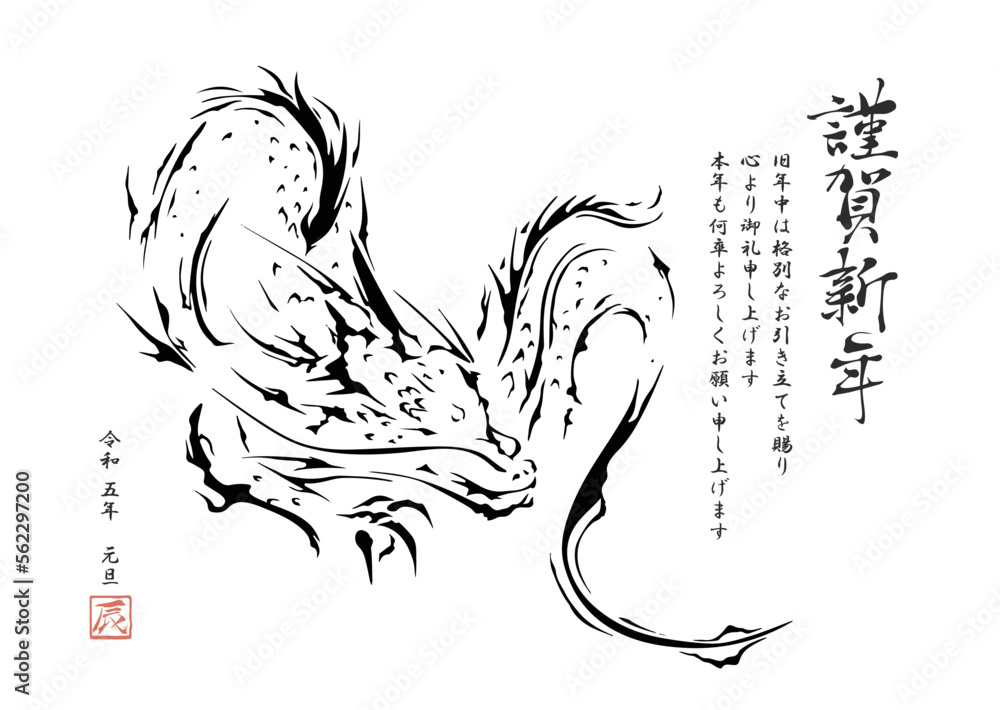 謹賀新年
旧年中は格別なお引き立てを賜り
心より御礼申し上げます
本年も何卒よろしくお願い申し上げます
令和五年 元旦
辰
Adobe Stock | #562297200
Adobe Stock